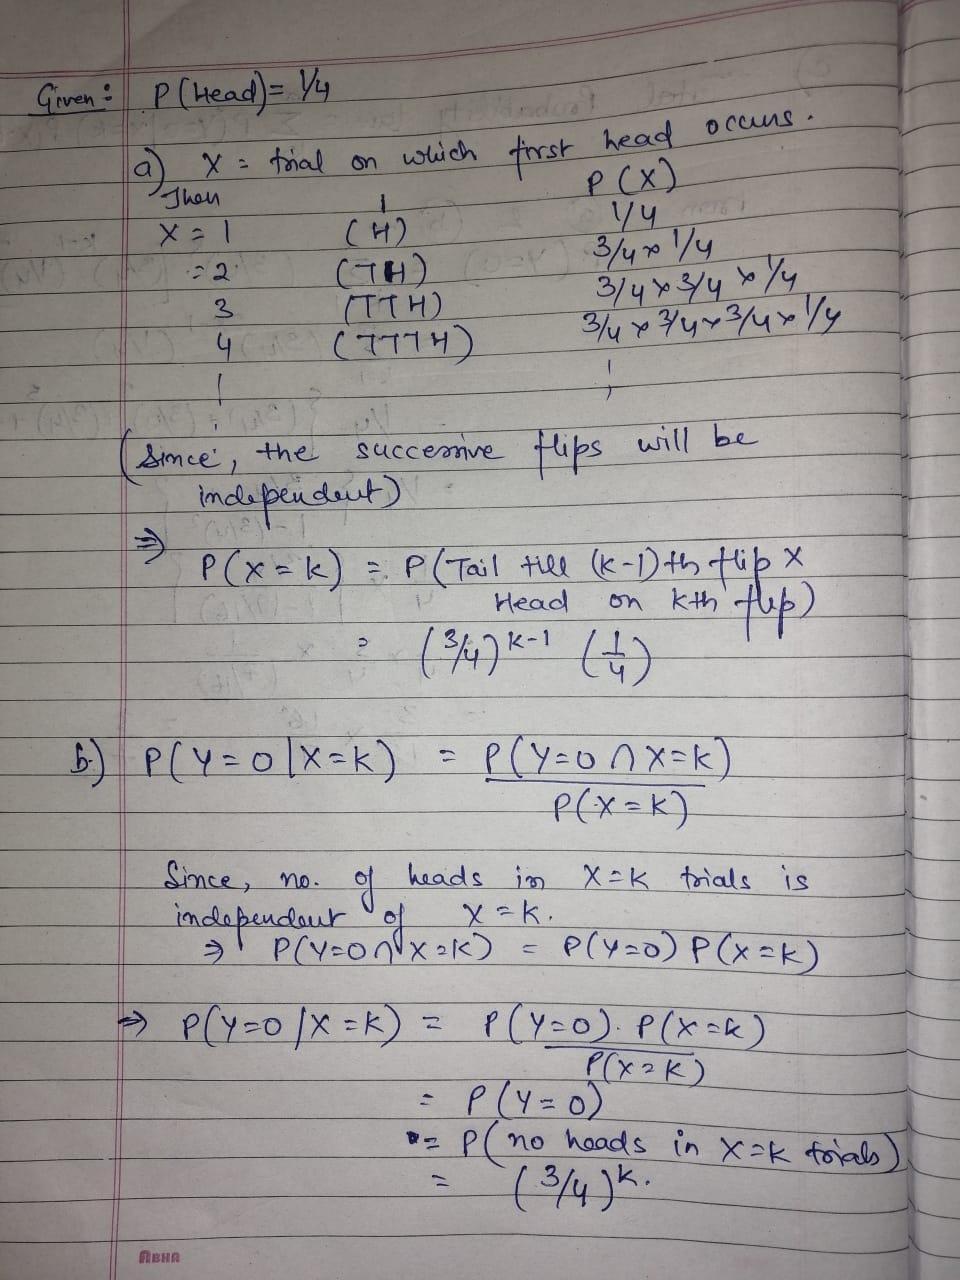 Given: P(Head) = 1/4
a) X = trial on which first head occurs.
Then P(X)
X = 1 (H) 1/4
= 2 (TH) 3/4 × 1/4
3 (TTH) 3/4 × 3/4 × 1/4
4 (TTTH) 3/4 × 3/4 × 3/4 × 1/4
(Since, the successive flips will be
independent)
⇒ P(X=k) = P(Tail till (k-1)th flip ×
Head on kth flip)
= (3/4)^{k-1} (1/4)
b.) P(Y=0|X=k) = P(Y=0 ∩ X=k)
P(X=k)
Since, no. of heads in X=k trials is
independent of X=k.
⇒ P(Y=0 ∩ X=k) = P(Y=0) P(X=k)
⇒ P(Y=0/X=k) = P(Y=0). P(X=k)
P(X=k)
= P(Y=0)
= P(no heads in X=k trials)
= (3/4)^k.
ABHA